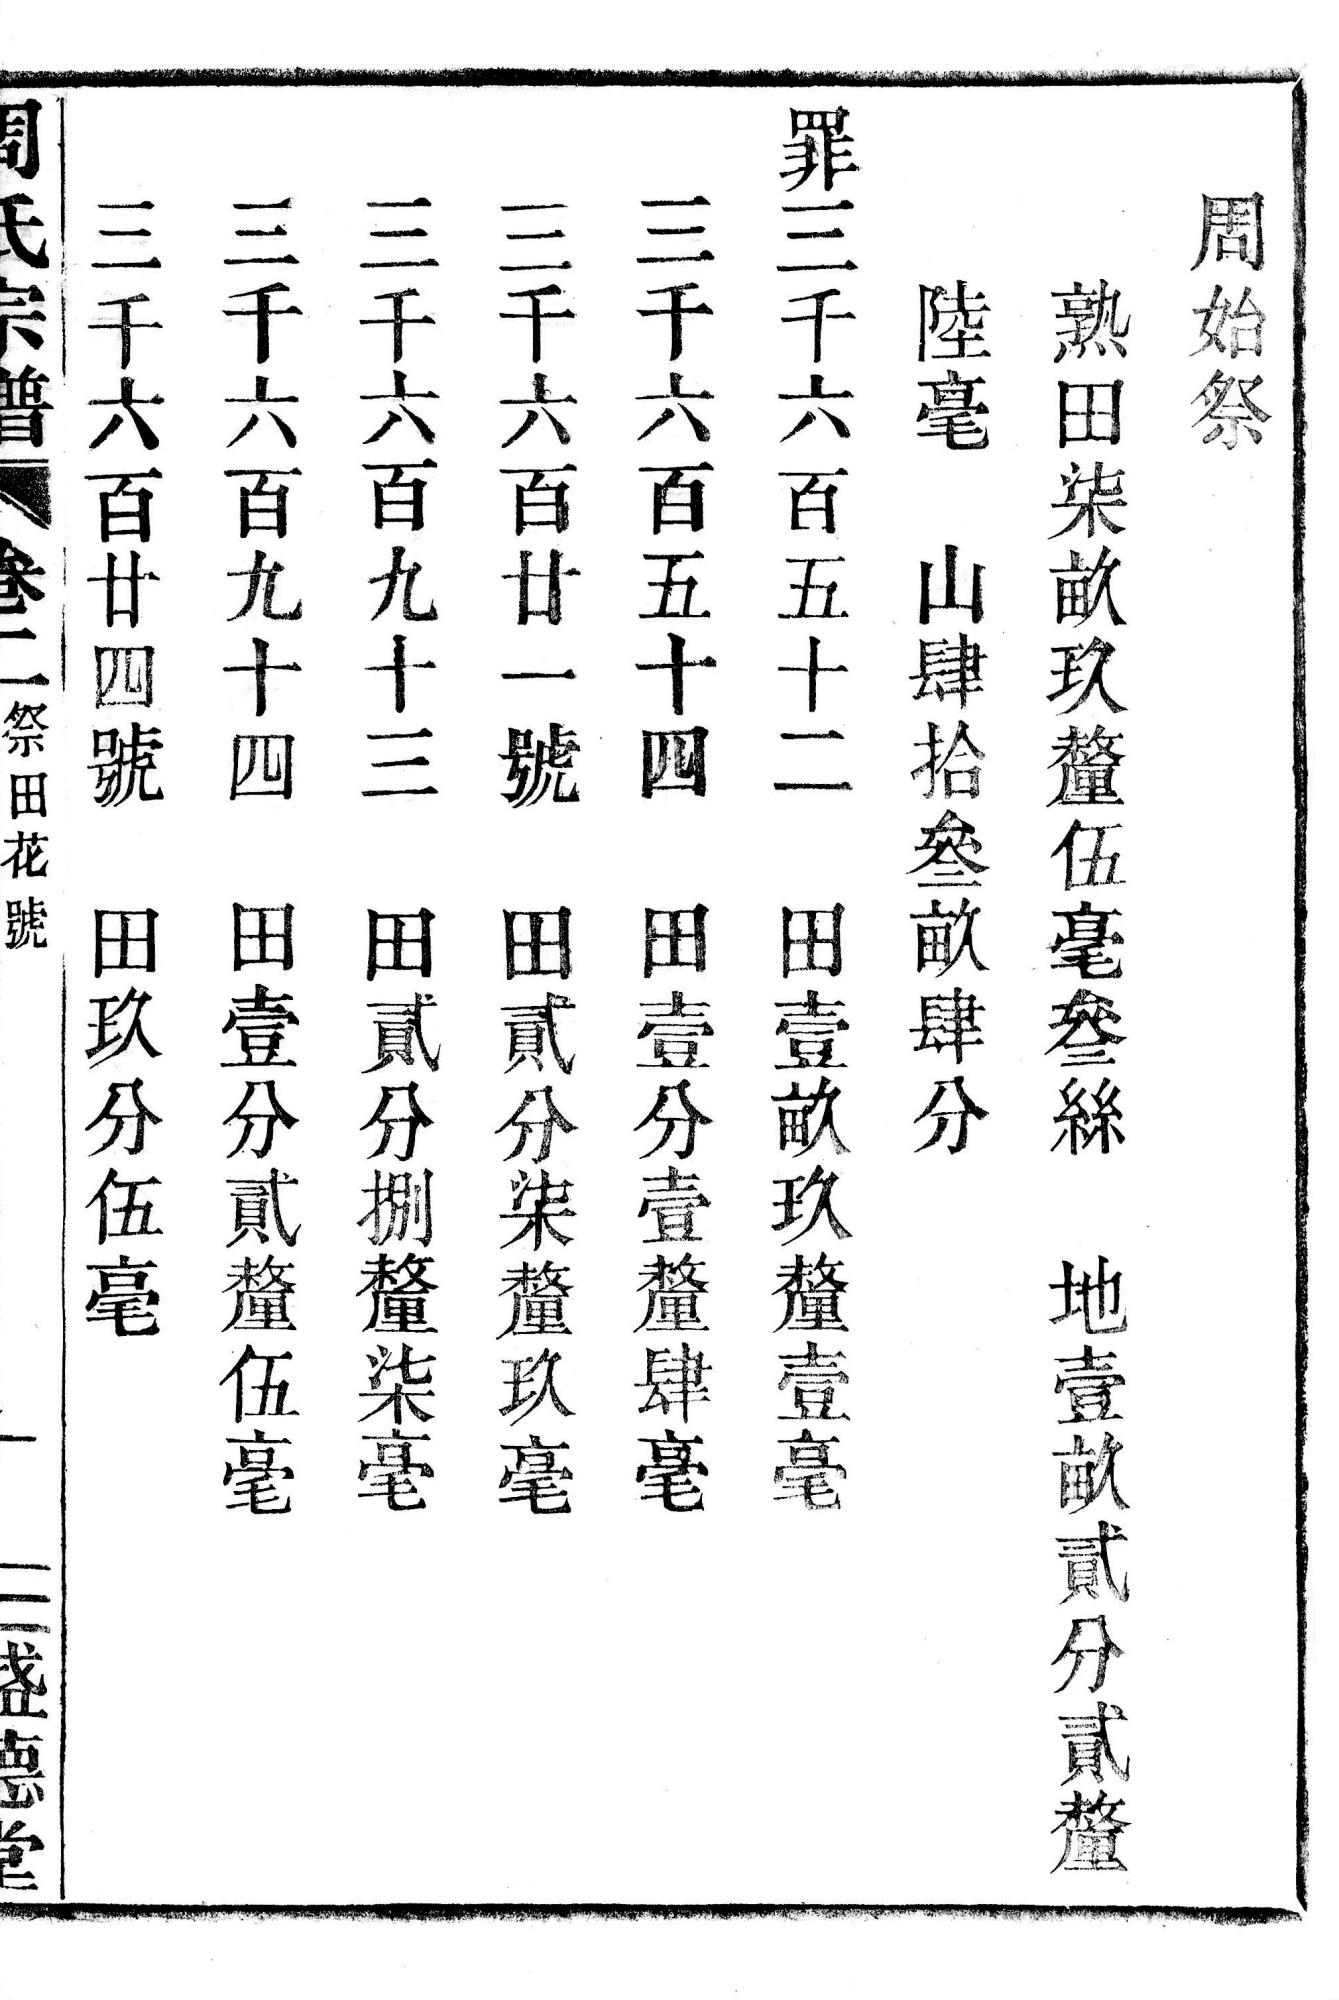 周始祭
熟田柒畝玖釐伍毫叄絲　地壹畝貳分貳釐
陸毫　山肆拾叄畝肆分
罪三千六百五十二　田壹畝玖釐壹毫
三千六百五十四　田壹分壹釐肆毫
三千六百廿一號　田貳分柒釐玖毫
三千六百九十三　田貳分捌釐柒毫
三千六百九十四　田壹分貳釐伍毫
三千六百廿四號　田玖分伍毫
周氏宗譜　卷二　祭田花號　三　盛德堂